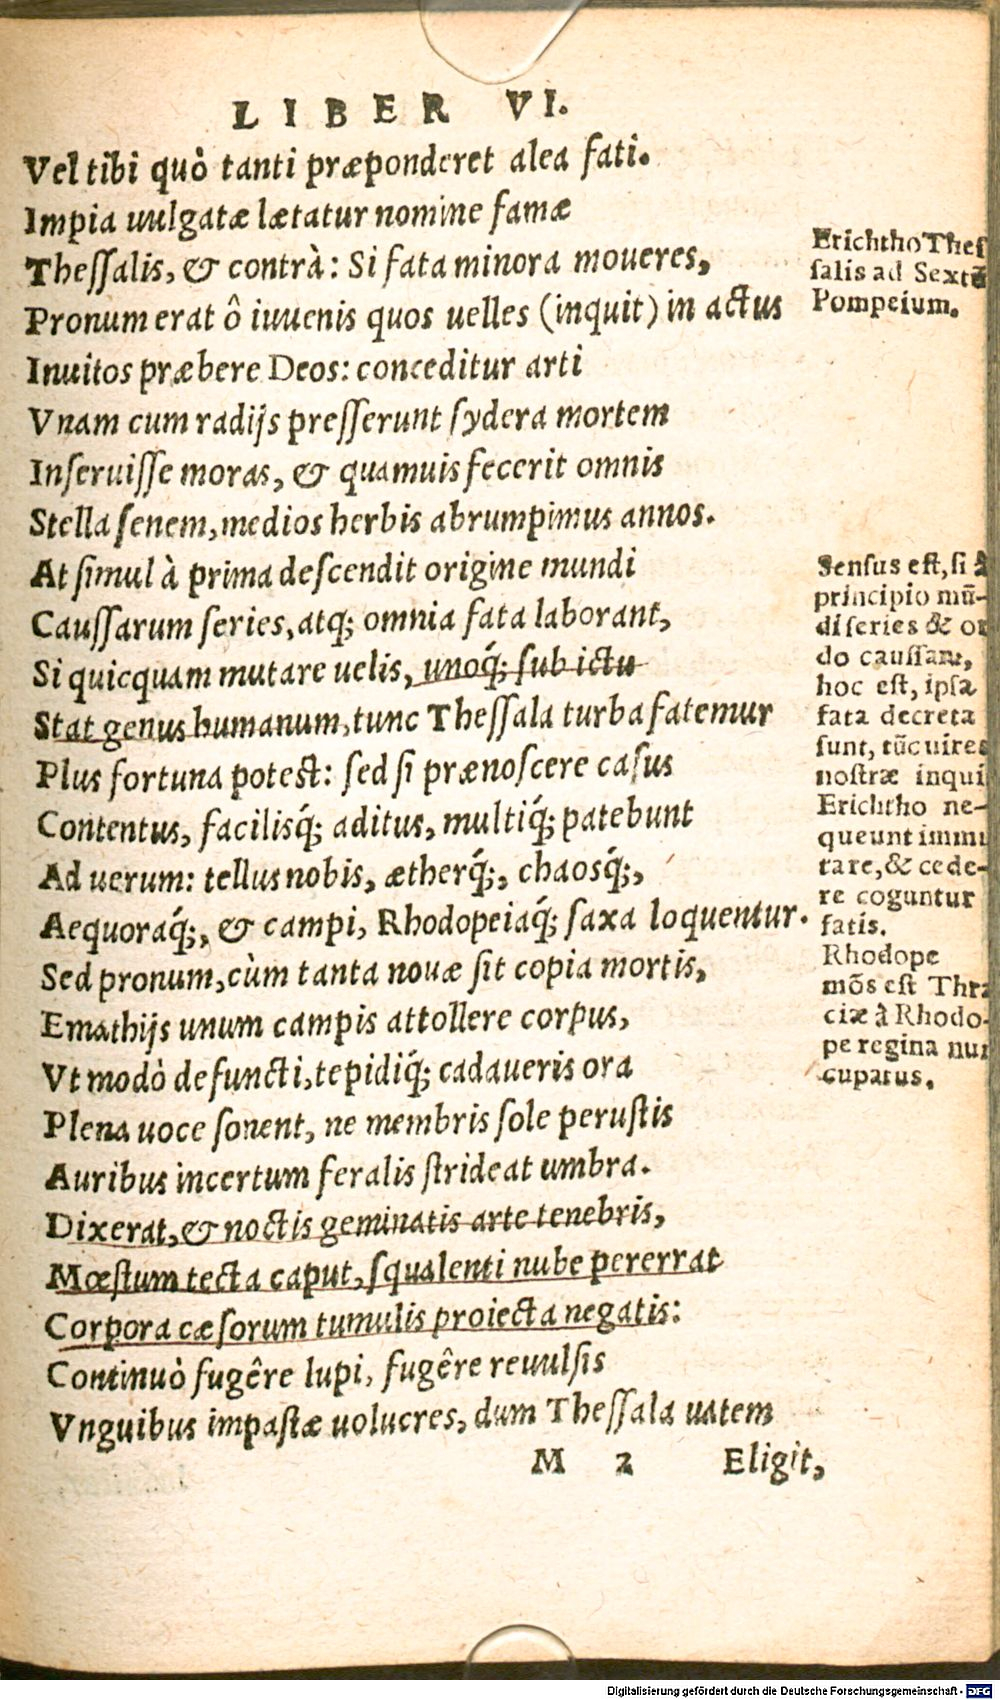 LIBER VI.
Vel tibi quò tanti præponderet alea fati.
Impia uulgatæ lætatur nomine famæ
Thessalis, & contrà: Si fata minora moueres,
Pronum erat ô iuuenis quos uelles (inquit) in actus
Inuitos præbere Deos: conceditur arti
Vnam cum radijs presserunt sydera mortem
Inseruisse moras, & quamuis fecerit omnis
Stella senem, medios herbis abrumpimus annos.
At simul à prima descendit origine mundi
Caussarum series, atq; omnia fata laborant,
Si quicquam mutare uelis, unoq́; sub ictu
Stat genus humanum, tunc Thessala turba fatemur
Plus fortuna potest: sed si prænoscere casus
Contentus, facilisq́; aditus, multiq́; patebunt
Ad uerum: tellus nobis, ætherq́;, chaosq́;,
Aequoraq́;, & campi, Rhodopeiaq́; saxa loquentur.
Sed pronum, cùm tanta nouæ sit copia mortis,
Emathijs unum campis attollere corpus,
Vt modò defuncti, tepidiq́; cadaueris ora
Plena uoce sonent, ne membris sole perustis
Auribus incertum feralis strideat umbra.
Dixerat, & noctis geminatis arte tenebris,
Mœstum tecta caput, squalenti nube pererrat
Corpora cæsorum tumulis proiecta negatis:
Continuò fugêre lupi, fugêre reuulsis
Vnguibus impastæ uolucres, dum Thessala uatem
M 2 Eligit,
Erichtho Thes
salis ad Sextũ
Pompeium.
Sensus est, si à
principio mũ-
di series & or
do caussarũ,
hoc est, ipsa
fata decreta
sunt, tũc uires
nostræ inqui
Erichtho ne-
queunt immu
tare, & cede-
re coguntur
fatis.
Rhodope
mõs est Thra
ciæ à Rhodo-
pe regina nun
cupatus.
Digitalisierung gefördert durch die Deutsche Forschungsgemeinschaft - DFG